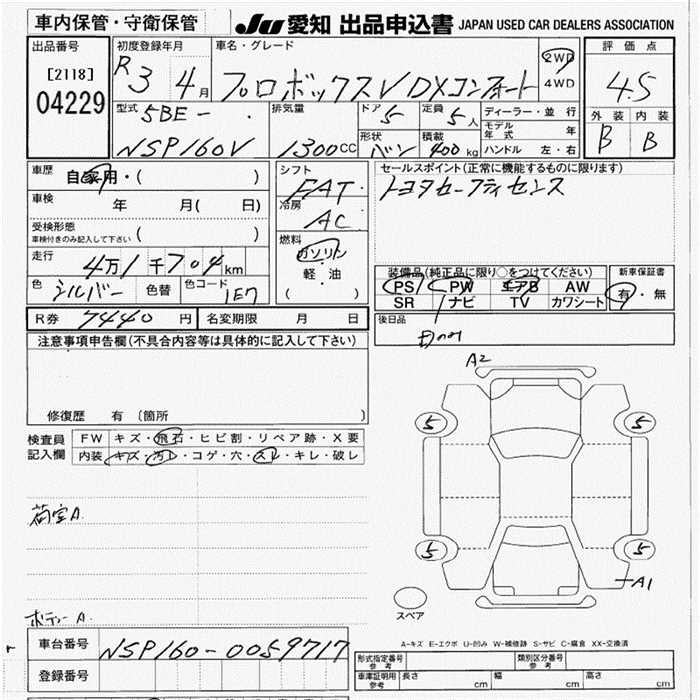 車内保管・守衛保管
JU 愛知 出品申込書 JAPAN USED CAR DEALERS ASSOCIATION
出品番号
[2118]
04229
初度登録年月
R3 4月
車名・グレード
プロボックスV DXコンフォート
2WD
4WD
評価点
4.5
外装 内装
B B
型式
5BE-
NSP160V
排気量
1300CC
ドア 5
定員 5人
形状 バン
積載 400kg
ディーラー・並行
モデル年式 年
ハンドル 左・右
車歴 自家用・( )
車検 年 月( 日)
受検形態
車検付きのみ記入して下さい ( )
走行 4万1千704km
色 シルバー 色替 色コード 1E7
シフト
FAT
冷房
AC
燃料
ガソリン
軽・油
( )
セールスポイント(正常に機能するものに限ります)
トヨタセーフティセンス
装備品(純正品に限り○をつけてください)
PS PW エアB AW
SR ナビ TV カワシート
新車保証書
有・無
後日品
R券 7440円 名変期限 月 日
注意事項申告欄(不具合内容等は具体的に記入して下さい)
修復歴 有 (箇所
検査員
記入欄
FW キズ・飛石・ヒビ割・リペア跡・X要
内装 キズ・汚レ・コゲ・穴・スレ・キレ・破レ
荷室A
ボディーA
A2
5 5
5 5
A1
スペア
A-キズ E-エクボ U-凹み W-補修跡 S-サビ C-腐食 XX-交換済
車台番号 NSP160-0059717
登録番号
型式指定番号
参考
類別区分番号
参考
車庫証明用
参考
長さ cm 幅 cm 高さ cm